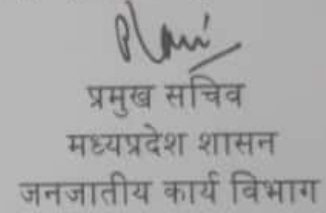 प्रमुख सचिव
मध्यप्रदेश शासन
जनजातीय कार्य विभाग